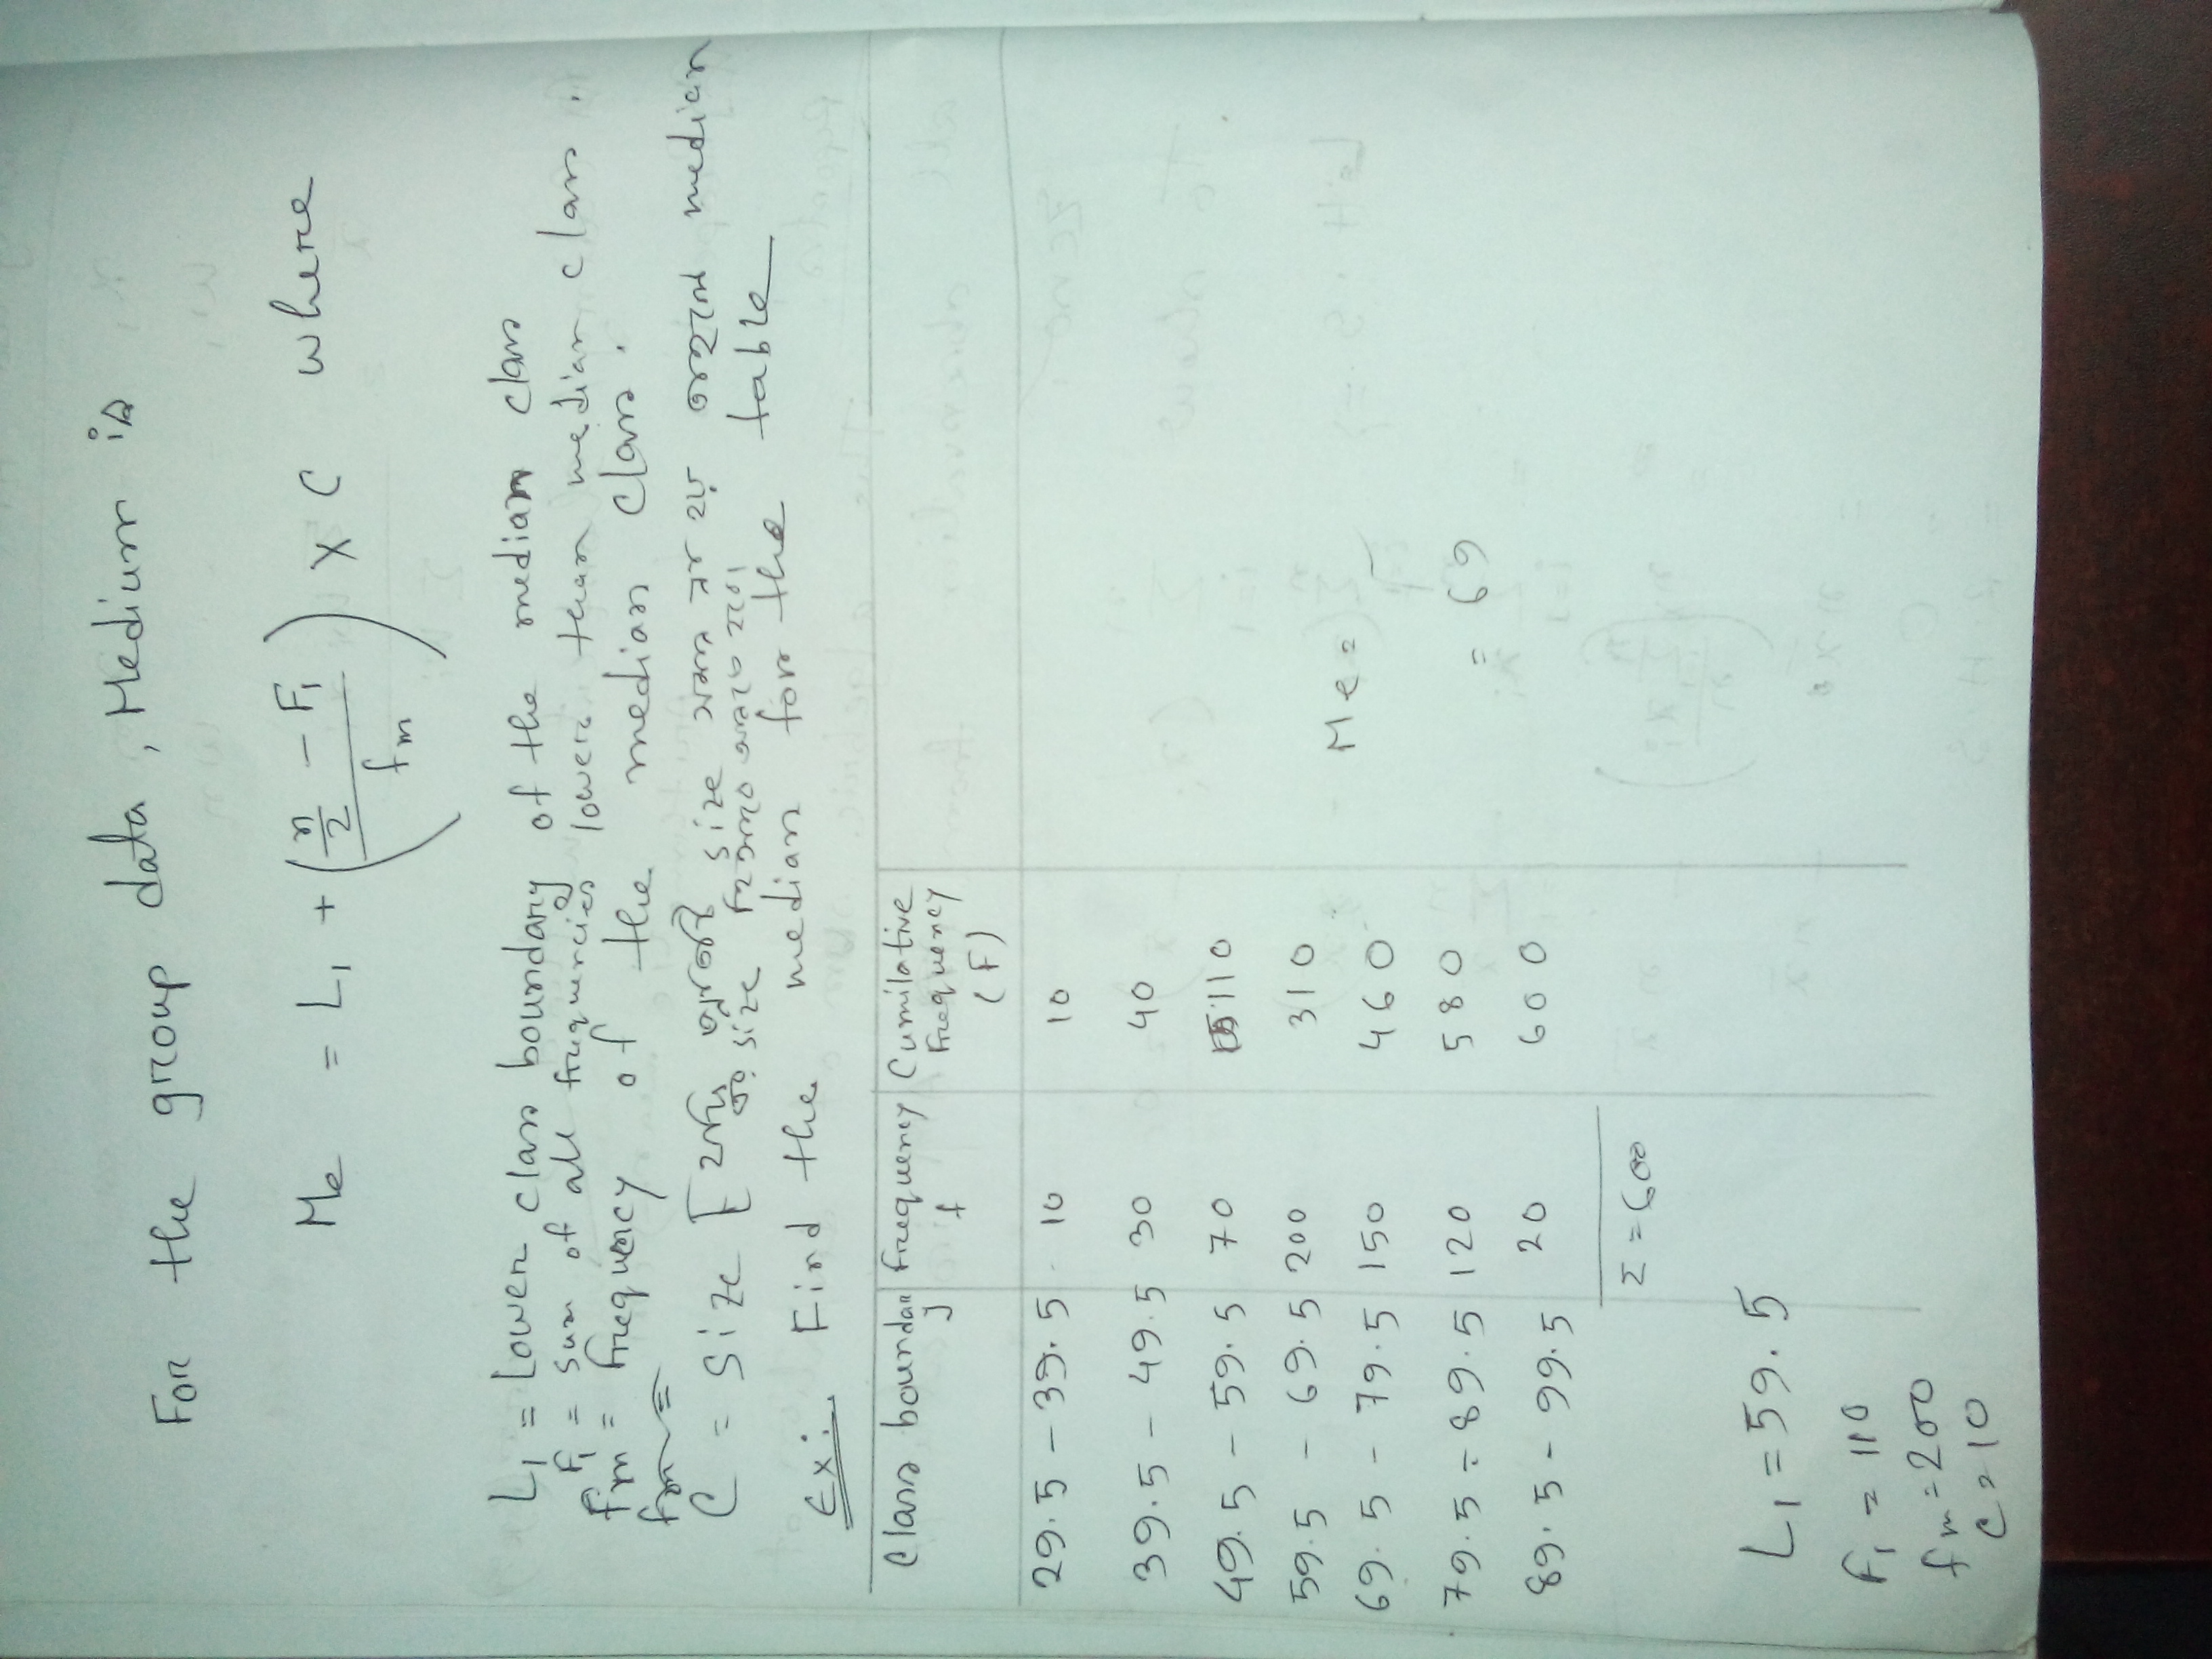 For the group data, Medium is
Me = L1 + ( (n/2 - F1) / fm ) x C where
L1 = lower class boundary of the median class
F1 = sum of all frequencies lower than median class.
fm = frequency of the median class.
C = size
size
size
median
Ex: Find the median for the table
Class boundary frequency f Cumilative frequency (F)
29.5 - 39.5 10 10
39.5 - 49.5 30 40
49.5 - 59.5 70 110
59.5 - 69.5 200 310
69.5 - 79.5 150 460 Me =
79.5 - 89.5 120 580 = 69
89.5 - 99.5 20 600
Σ = 600
L1 = 59.5
F1 = 110
fm = 200
C = 10